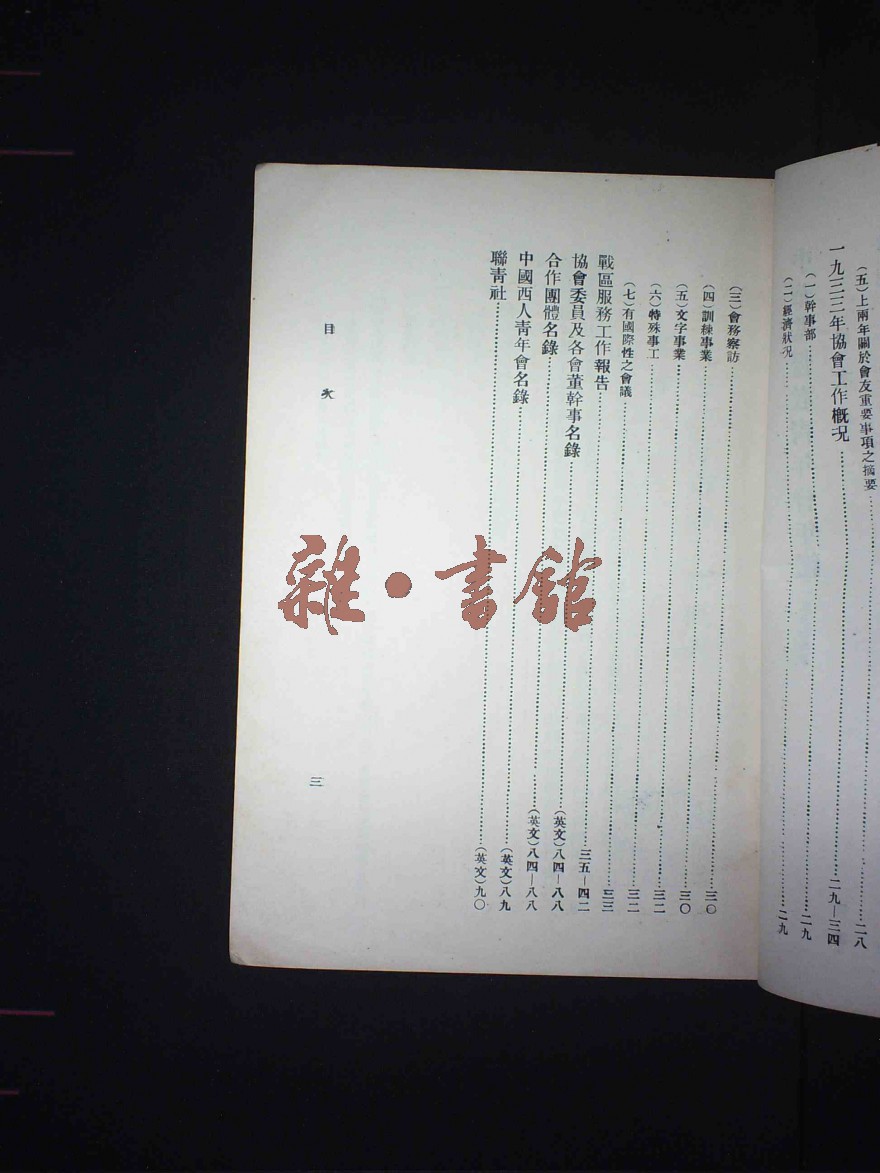 (五)上兩年關於會友重要事項之摘要……二八
一九三三年協會工作概況……二九—三四
(一)幹事部……二九
(二)經濟狀況……二九
(三)會務察訪……三〇
(四)訓練事業……三〇
(五)文字事業……三二
(六)特殊事工……三二
(七)有國際性之會議……三三
戰區服務工作報告……三五—四二
協會委員及各會董幹事名錄……(英文)八四—八八
合作團體名錄……(英文)八四—八八
中國西人青年會名錄……(英文)八九
聯青社……(英文)九〇
目次
三
雜·書館